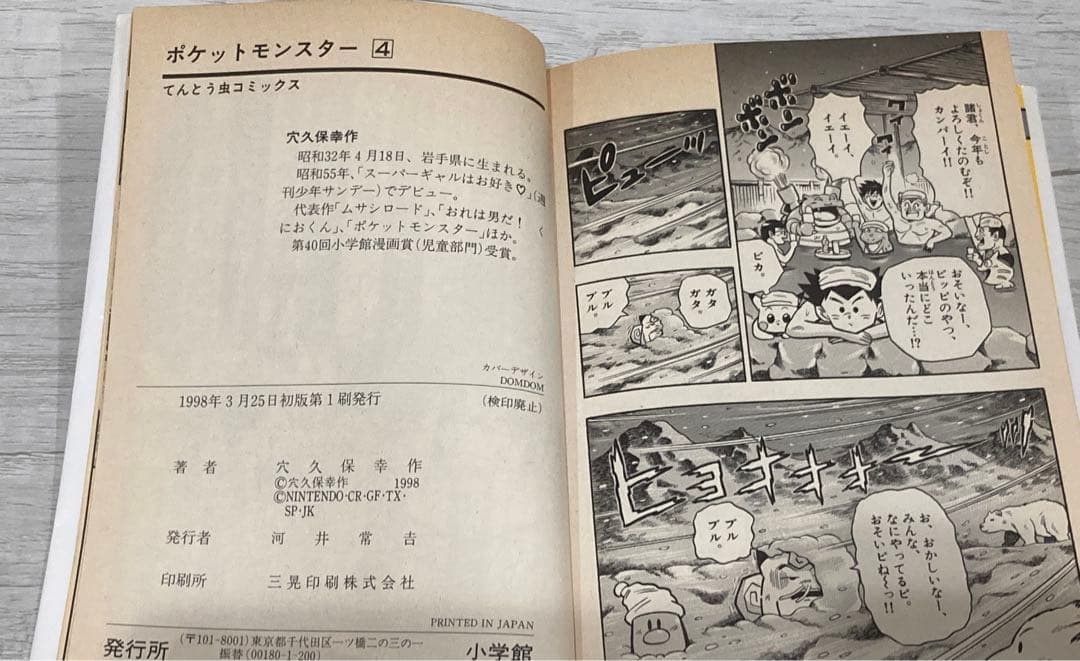 ポケットモンスター 4
てんとう虫コミックス
穴久保幸作
昭和32年4月18日、岩手県に生まれる。
昭和55年、「スーパーギャルはお好き♡」(週
刊少年サンデー)でデビュー。
代表作「ムサシロード」、「おれは男だ! く
におくん」、「ポケットモンスター」ほか。
第40回小学館漫画賞(児童部門)受賞。
カバーデザイン
DOMDOM
1998年3月25日初版第1刷発行
(検印廃止)
著者 穴久保幸作
©穴久保幸作 1998
©NINTENDO・CR・GF・TX・
SP・JK
発行者 河井常吉
印刷所 三晃印刷株式会社
PRINTED IN JAPAN
発行所
(〒101-8001)東京都千代田区一ツ橋二の三の一
振替(00180-1-200)
小学館
諸君、今年も
よろしくたのむぞ!!
カンパーイ!!
イエーイ、
イエーイ。
ボン
ボン
ピカ。
おそいなー、
ピッピのやつ、
本当にどこ
いったんだ…!?
ピューッ
ガタ
ガタ。
ブル
ブル。
ヒョオオオー!!
ブル
ブル。
お、おかしいなー、
みんな、
なにやってるピ。
おそいピね〜っ!!